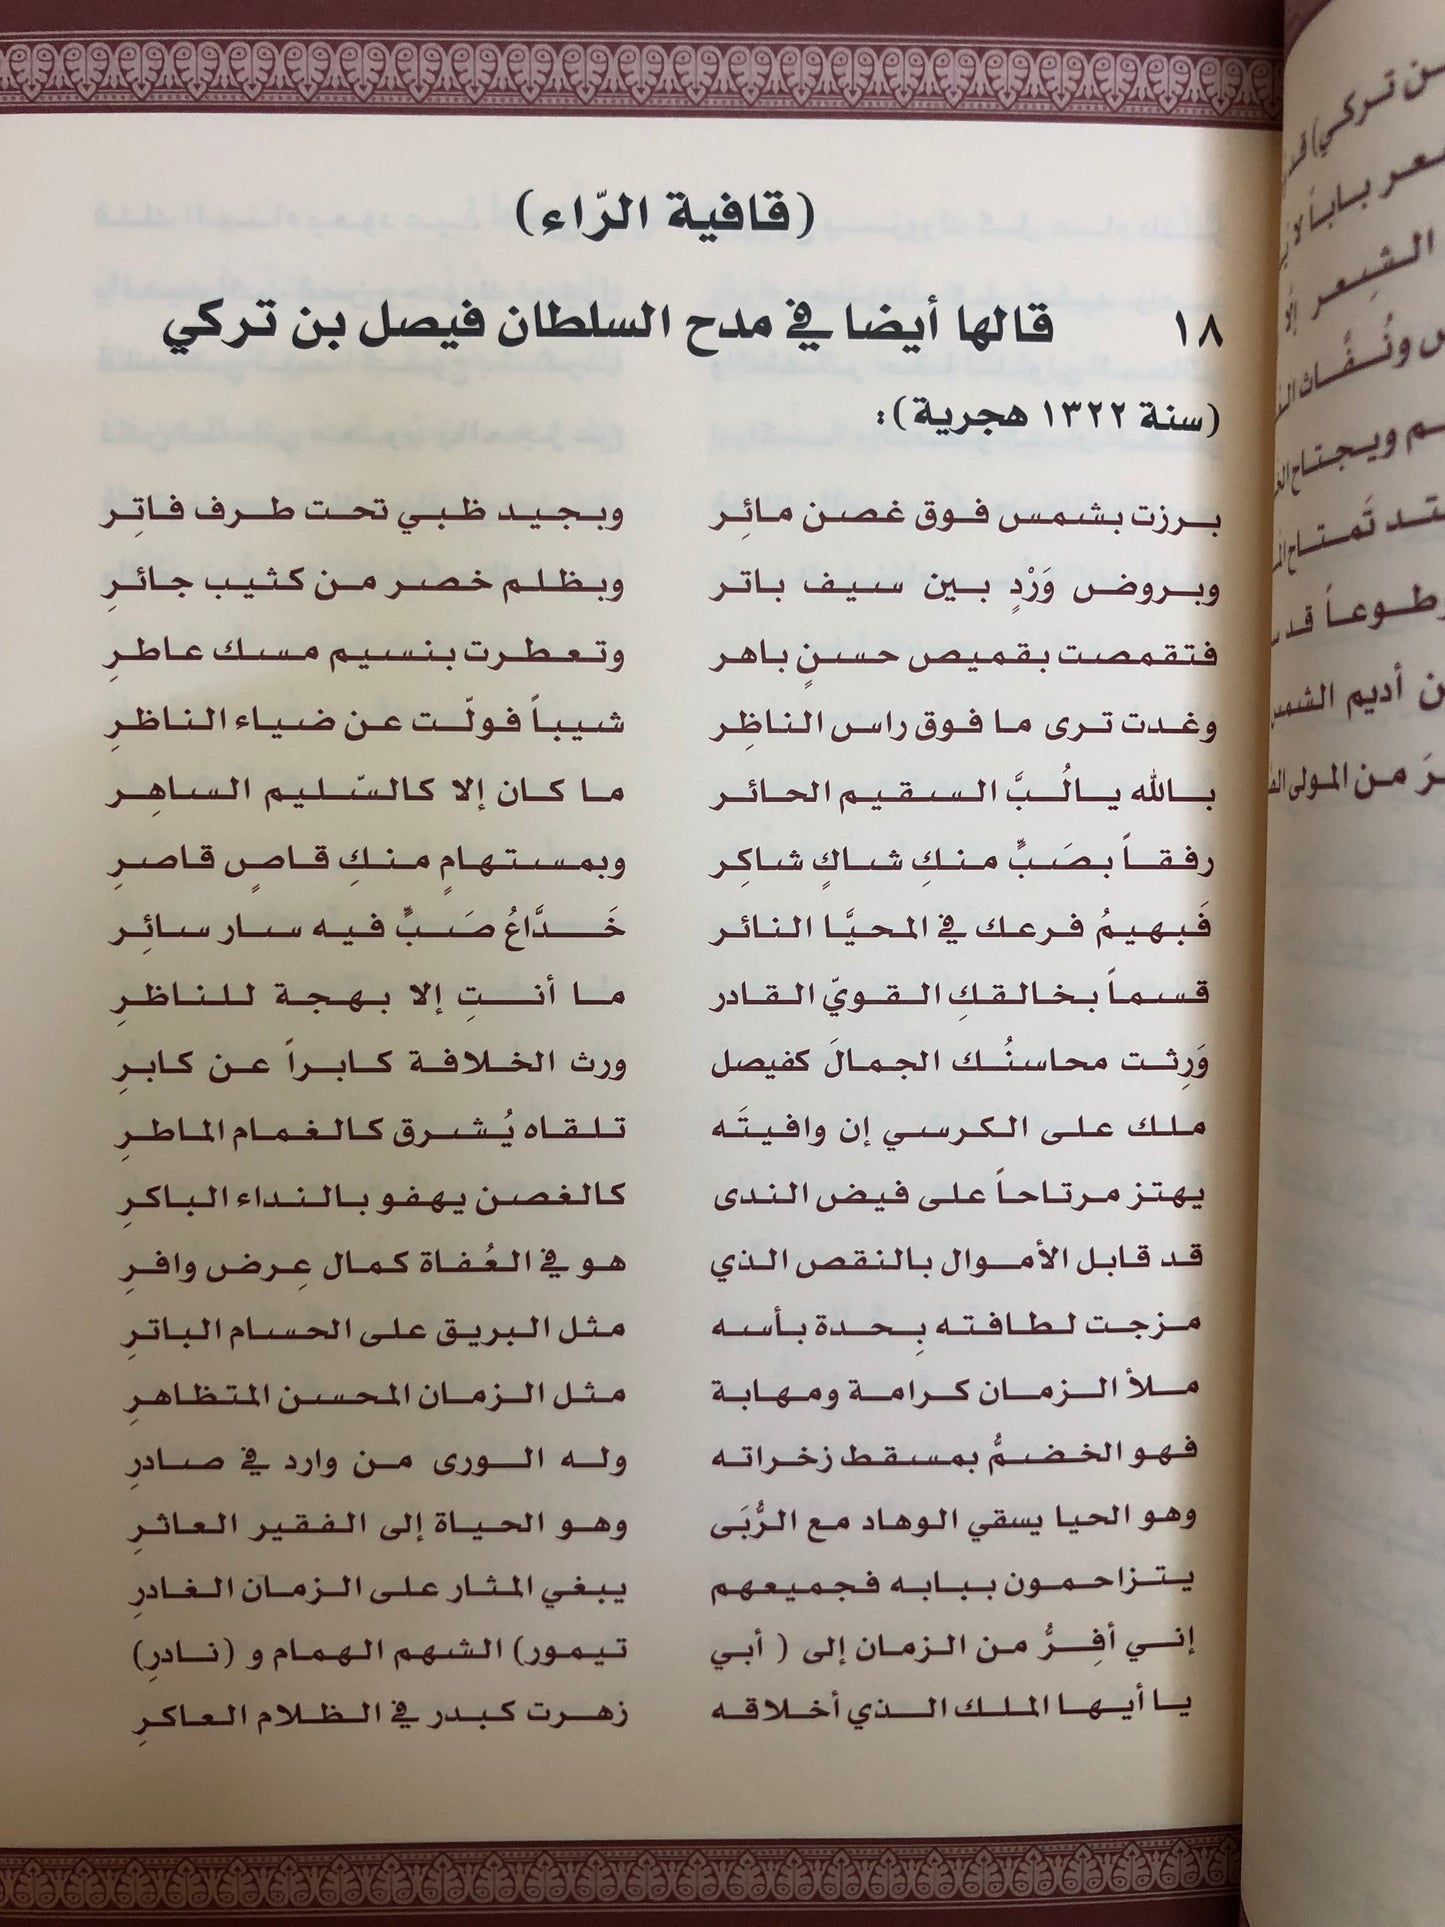 (قافية الرّاء)
١٨ قالها أيضا في مدح السلطان فيصل بن تركي
(سنة ١٣٢٢ هجرية):
برزت بشمس فوق غصن مائِر وبجيد ظبي تحت طرف فاتِر
وبروض وَرْدٍ بين سيف باتر وبظلم خصر من كثيب جائرِ
فتقمصت بقميص حسنٍ باهر وتعطرت بنسيم مسك عاطرِ
وغدت ترى ما فوق راس الناظِر شيباً فولّت عن ضياء الناظرِ
بالله يالُبَّ السقيم الحائر ما كان إلا كالسّليم الساهِرِ
رفقاً بصَبٍّ منكِ شاكٍ شاكِر وبمستهامٍ منكِ قاصٍ قاصرِ
فَبهيمُ فرعك في المحيَّا النائر خَدَّاعُ صَبٍّ فيه سار سائِرِ
قسماً بخالقكِ القويّ القادر ما أنتِ إلا بهجة للناظرِ
وَرِثت محاسنُك الجمالَ كفيصل ورث الخلافة كابراً عن كابرِ
ملك على الكرسي إن وافيتَه تلقاه يُشرق كالغمام الماطرِ
يهتز مرتاحاً على فيض الندى كالغصن يهفو بالنداء الباكرِ
قد قابل الأموال بالنقص الذي هو في العُفاة كمال عِرض وافرِ
مزجت لطافته بِحدة بأسه مثل البريق على الحسام الباترِ
ملأ الزمان كرامة ومهابة مثل الزمان المحسن المتظاهرِ
فهو الخضمُّ بمسقط زخراته وله الورى من وارد في صادرِ
وهو الحيا يسقي الوهاد مع الرُّبَى وهو الحياة إلى الفقير العاثرِ
يتزاحمون ببابه فجميعهم يبغي المثار على الزمان الغادرِ
إني أفِرُّ من الزمان إلى ( أبي تيمور) الشهم الهمام و (نادرِ)
يا أيها الملك الذي أخلاقه زهرت كبدر في الظلام العاكرِ
ن تركي)
باباً لا
الشِعر إلَّا
ونُفَّاث
ـم ويجتاح
تَمتاح
طوعاً قد
ن أديم الشمس
من المولى